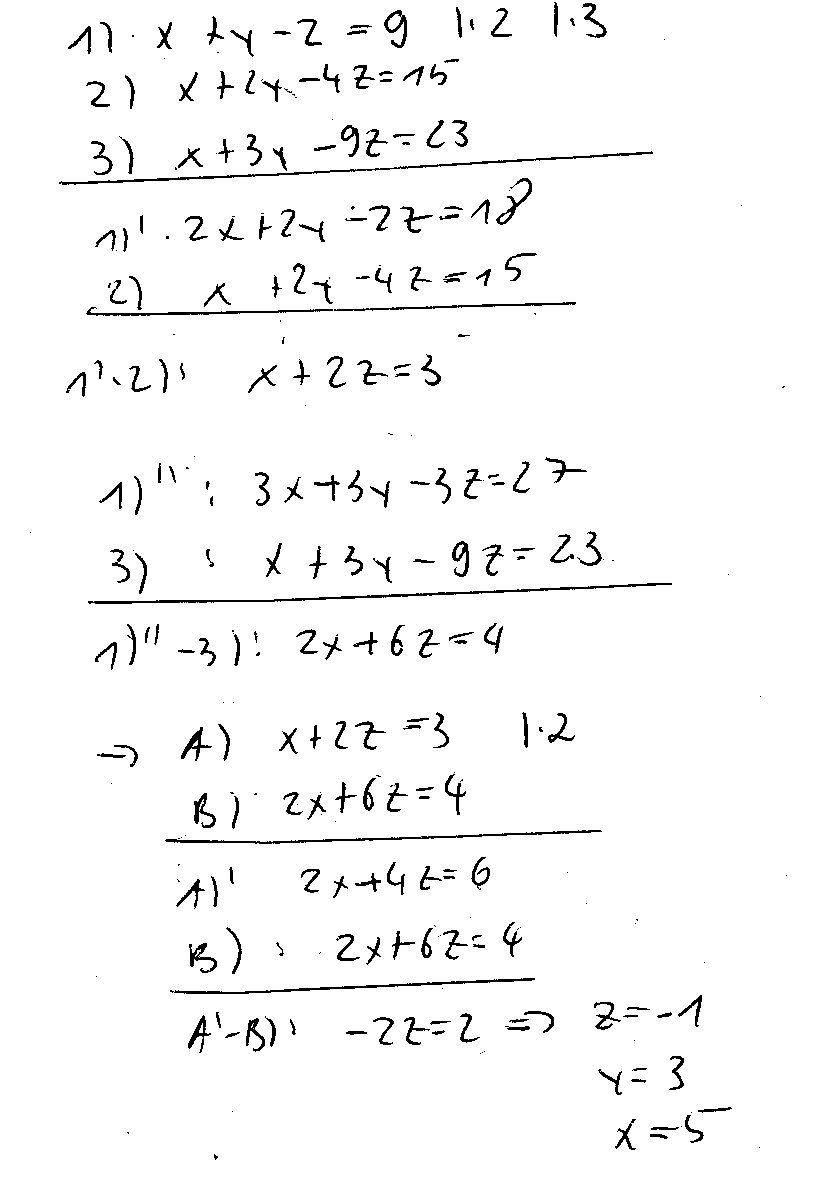 1) x + y - z = 9 |·2 |·3
2) x + 2y - 4z = 15
3) x + 3y - 9z = 23
1)' 2x + 2y - 2z = 18
2) x + 2y - 4z = 15
1'-2): x + 2z = 3
1)'' : 3x + 3y - 3z = 27
3) : x + 3y - 9z = 23
1)'' - 3): 2x + 6z = 4
=> A) x + 2z = 3 |·2
B) 2x + 6z = 4
A)' 2x + 4z = 6
B) : 2x + 6z = 4
A'-B): -2z = 2 => z = -1
y = 3
x = 5